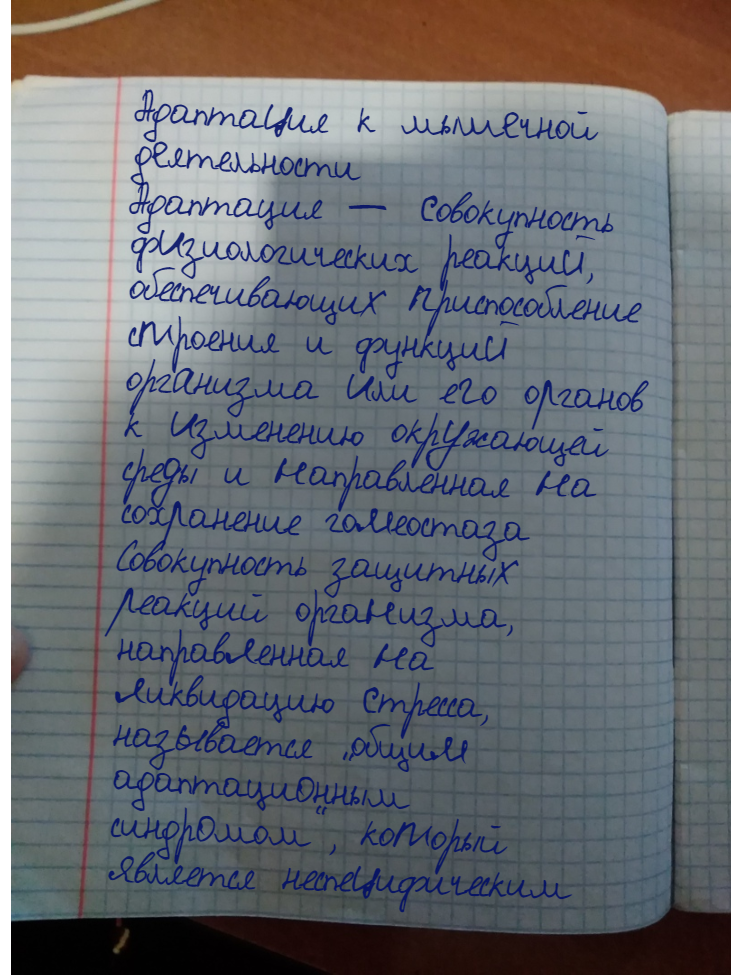 Адаптация к мышечной
деятельности
Адаптация — совокупность
физиологических реакций,
обеспечивающих приспособление
строения и функций
организма или его органов
к изменению окружающей
среды и направленная на
сохранение гомеостаза
Совокупность защитных
реакций организма,
направленная на
ликвидацию стресса,
называется „общим
адаптационным
синдромом“, который
является неспецифическим